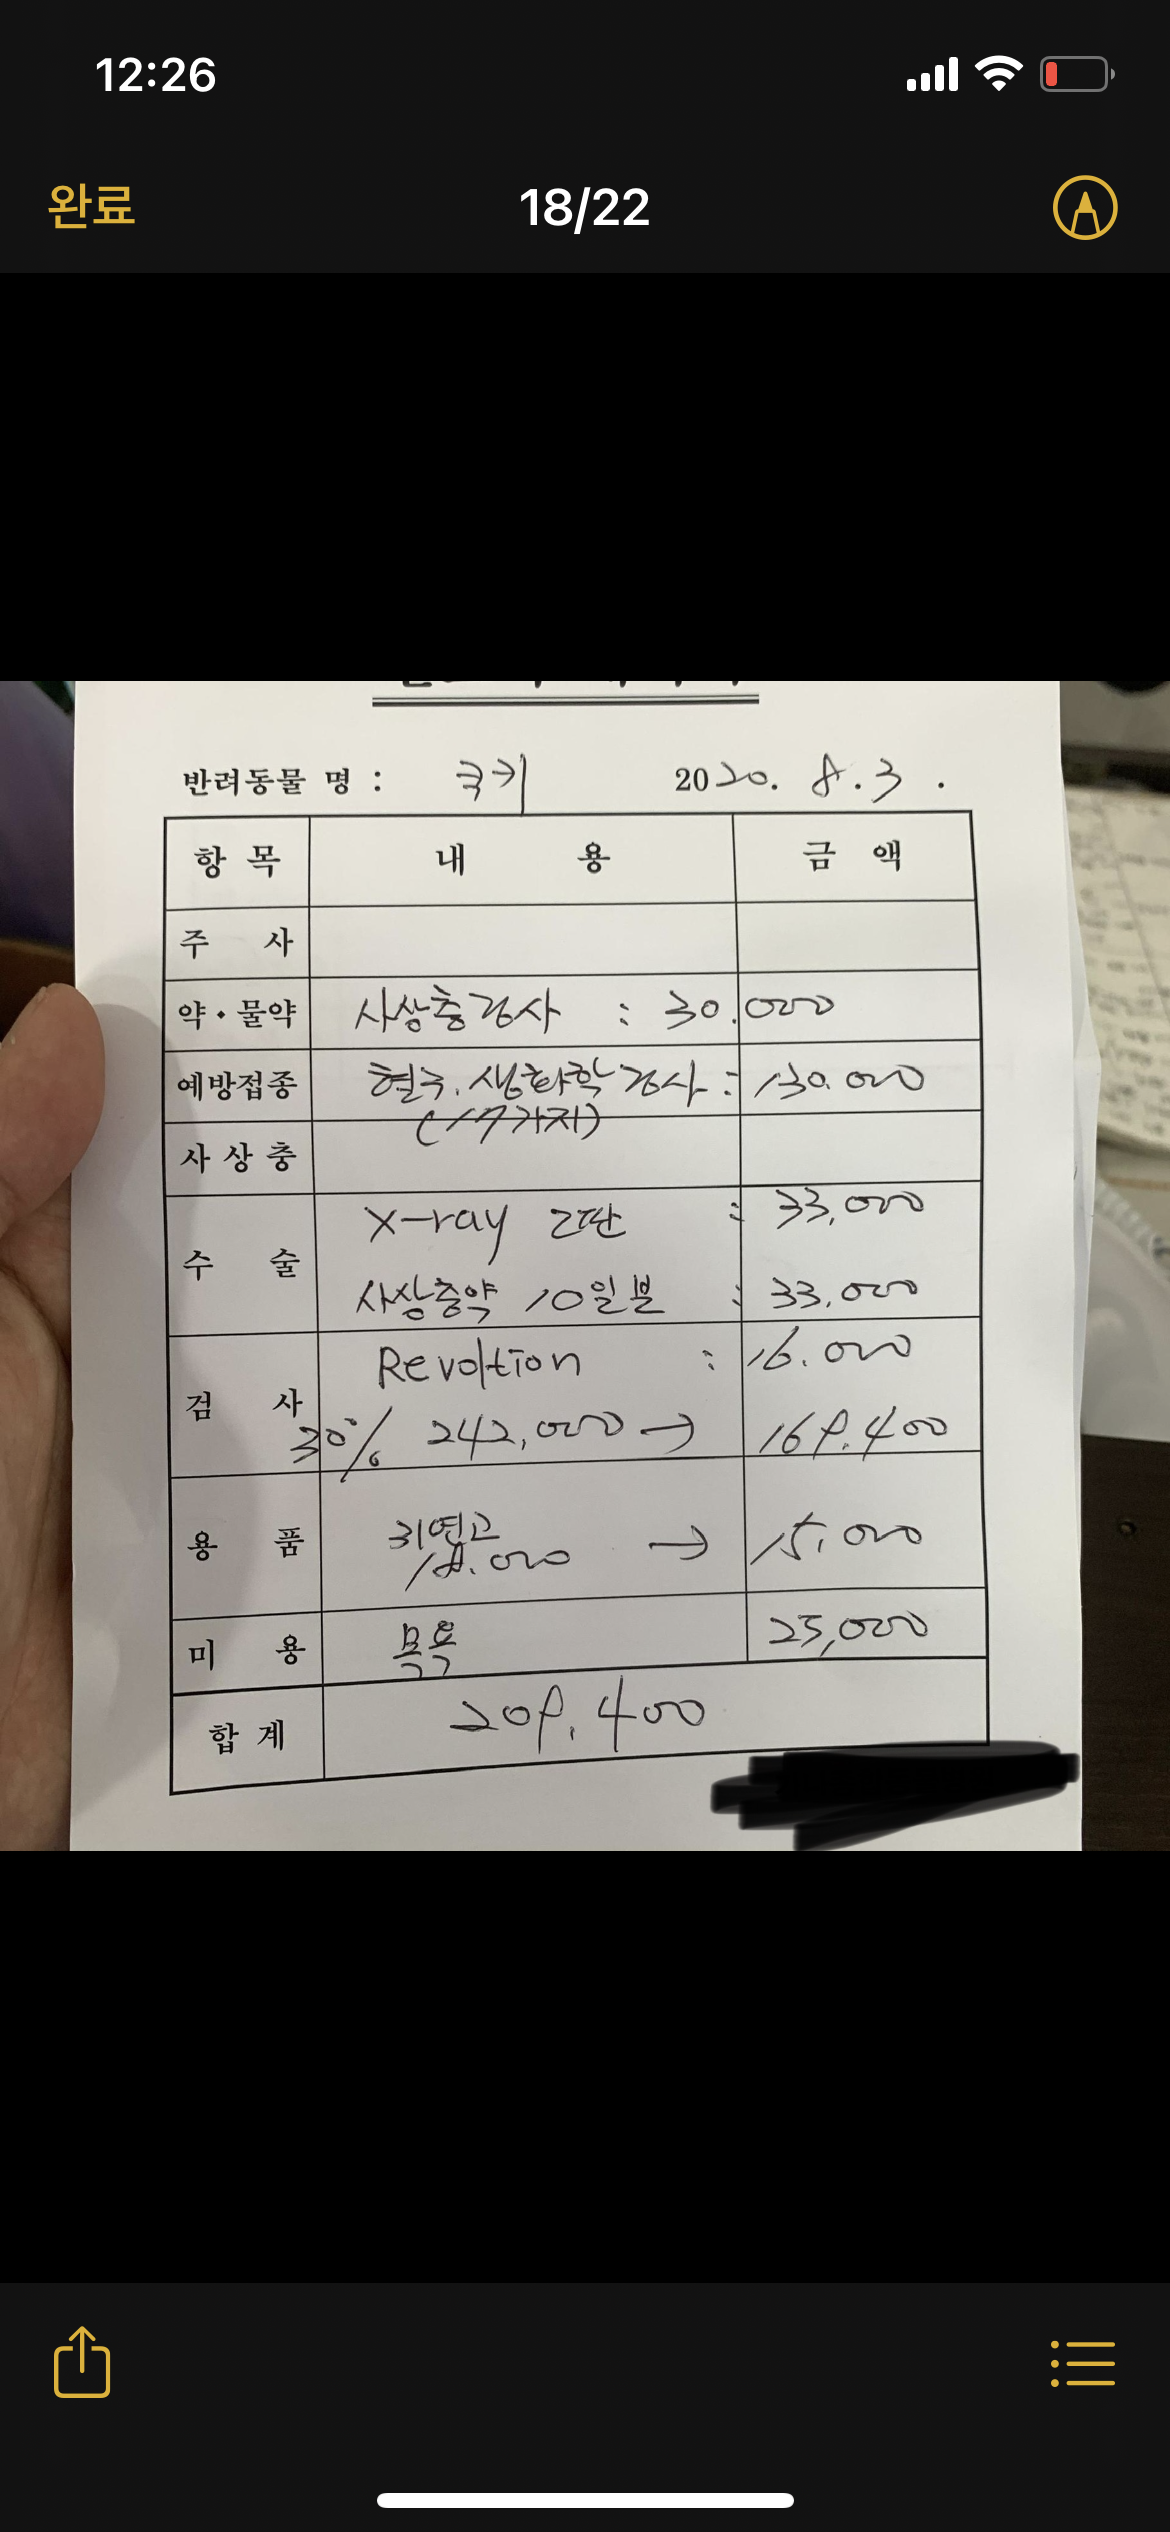 12:26
완료
18/22
반려동물 명 : 쿠키 2020. 8.3 .
항 목 내 용 금 액
주 사
약·물약 사상충검사 : 30.000
예방접종 혈구.생화학검사 : 130.000
(17가지)
사상충
수 술 X-ray 2판 : 33,000
사상충약 10일분 : 33.000
검 사 Revoltion : 16.000
30% 242,000 → 169.400
용 품 귀연고
18.000 → 15,000
미 용 목욕 25,000
합 계 209.400